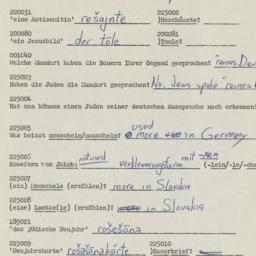 220031 225002
'eine Antisemitin' rešajnte )Reschüente?
220080 200081
'ein Jesusbild' der tole )Toele?
001040
Welche Mundart haben die Bauern Ihrer Gegend gesprochen? "reines Deu
225003
Haben die Juden die Mundart gesprochen? No, Jews spoke "reines
225004
Hat man können einen Juden seiner deutschen Aussprache nach erkennen?
225005 used
Was heisst nooscheln/nuuscheln? more in Germany
225006 not used
Koseform von Jakob: Verkleinerungsform mit -len (-lein/-le/-che
225007
(ein) Möceschele (erzählen)? more in Slovakia
225008
(eine) Lootze(le) (erzählen)? in Slovakia
189021
'das jüdische Neujahr' rošešōna
225009 225010
'Neujahrskarte' rošašōnakarte )Guserbrief?